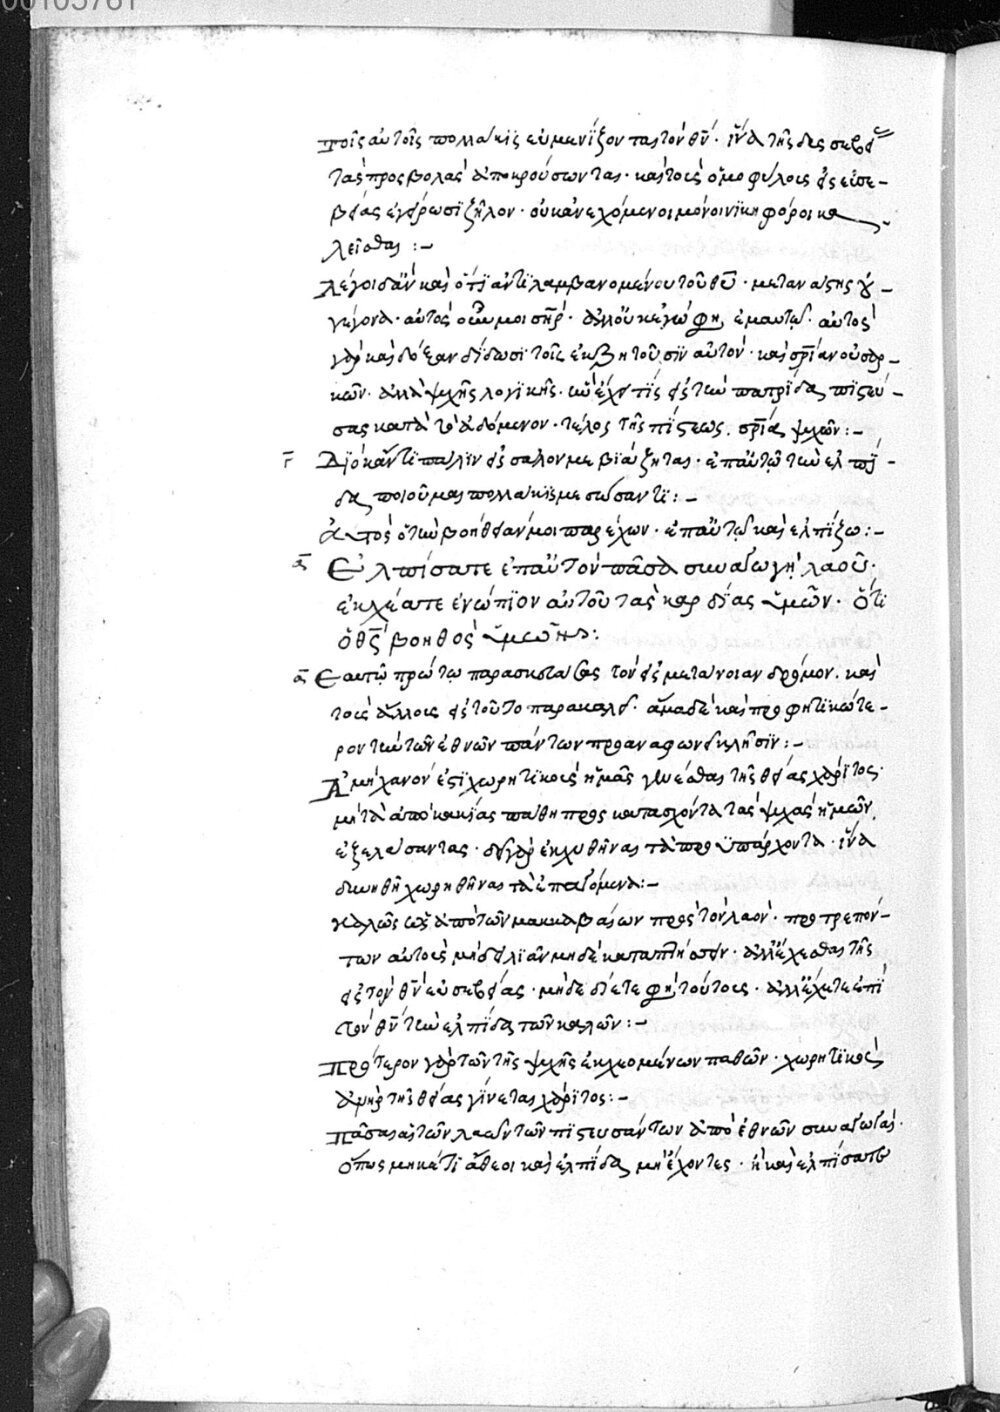 00105761
τοῖς αὐτοῖς πολλάκις εὐμενίζονται τὸν θν̄· ἵνα τῆς δυσσεβεί
τὰς προσβολὰς ἀποκρούσωνται· καὶ τοὺς ὁμοφύλους εἰς εὐσε-
βείας ἐγείρωσι ζῆλον· οὐκ ἀνεχόμενοι μόνοι νικηφόροι κα
λεῖσθαι :-
λέγοι δ' ἂν καὶ ὅτι ἀντιλαμβανομένου τοῦ θῡ· μετανάστης οὐ
γέγονα· αὐτὸς οὖν μοι σηρ̄· ἀλλ' οὐκ ἐγώ φη, ἐμαυτῷ· αὐτὸς
γὰρ καὶ δόξαν δίδωσι τοῖς ἐκζητοῦσιν αὐτόν· καὶ σρίαν οὐ σαρ-
κῶν· ἀλλὰ ψυχῆς λογικῆς· ἣν ἔχει τις εἰς τὴν πατρίδα πιστεύ-
σας κατὰ τὸ ἀδόμενον· τέλος τῆς πίστεως, σρίαν ψυχῶν :-
Γ Διὸ κἄν τι πάλιν εἰς σάλον με βιάζηται· ἐπ' αὐτῷ τὴν ελπί-
δα ποιοῦμαι πολλάκις με σώσαντι :-
Αὐτὸς ὁ τὴν βοήθειάν μοι παρέχων· ἐπ' αὐτῷ καὶ ἐλπίζω :-
α Ελπίσατε ἐπ' αὐτὸν πᾶσα συναγωγὴ λαοῦ·
ἐκχέατε ἐνώπιον αὐτοῦ τὰς καρδίας ὑμῶν· ὅτι
ὁ θς̄ βοηθὸς ὑμῶν :
α Εαυτῷ πρώτῳ παρασκευάσας τὸν εἰς μετάνοιαν δρόμον. καὶ
τοῖς ἄλλοις εἰς τοῦτο παρακαλεῖ· ἅμα δὲ καὶ προφητικώτε-
ρον τὴν τῶν ἐθνῶν πάντων προαναφωνεῖ κλῆσιν :-
Αμήχανόν ἐστι χωρητικοὺς ἡμᾶς γενέσθαι τῆς θείας χάριτος·
μὴ τὰ ἀπὸ κακίας πάθη προκατασχόντα τὰς ψυχὰς ἡμῶν,
ἐξελάσαντας· δεῖ γὰρ ἐκχυθῆναι τὰ προϋπάρχοντα· ἵνα
δυνηθῇ χωρηθῆναι τὰ ἐπαγόμενα :-
Καλῶς ὡς ἀπὸ τῶν μακκαβαίων πρὸς τὸν λαόν· προτρεπόν-
των αὐτοὺς μὴ δειλιᾶν μηδὲ καταπλήσσειν· ἀλλ' ἔχεσθαι τῆς
εἰς τὸν θν̄ εὐσεβείας· μὴ δέδιετε φη, τούτους· ἀλλ' ἔχετε ἐπὶ
τὸν θν̄ τὴν ἐλπίδα τῶν καλῶν :-
Πρότερον γὰρ τῶν τῆς ψυχῆς ἐκχεομένων παθῶν· χωρητικὸς
ἀνὴρ τῆς θείας γίνεται χάριτος :-
Πᾶσαι αἱ τῶν λαῶν τῶν πιστευσάντων ἀπὸ ἐθνῶν συναγωγαί·
ὅπως μηκέτι ἄθεοι καὶ ἐλπίδα μὴ ἔχοντες· ἢ καὶ ἐλπίσατε